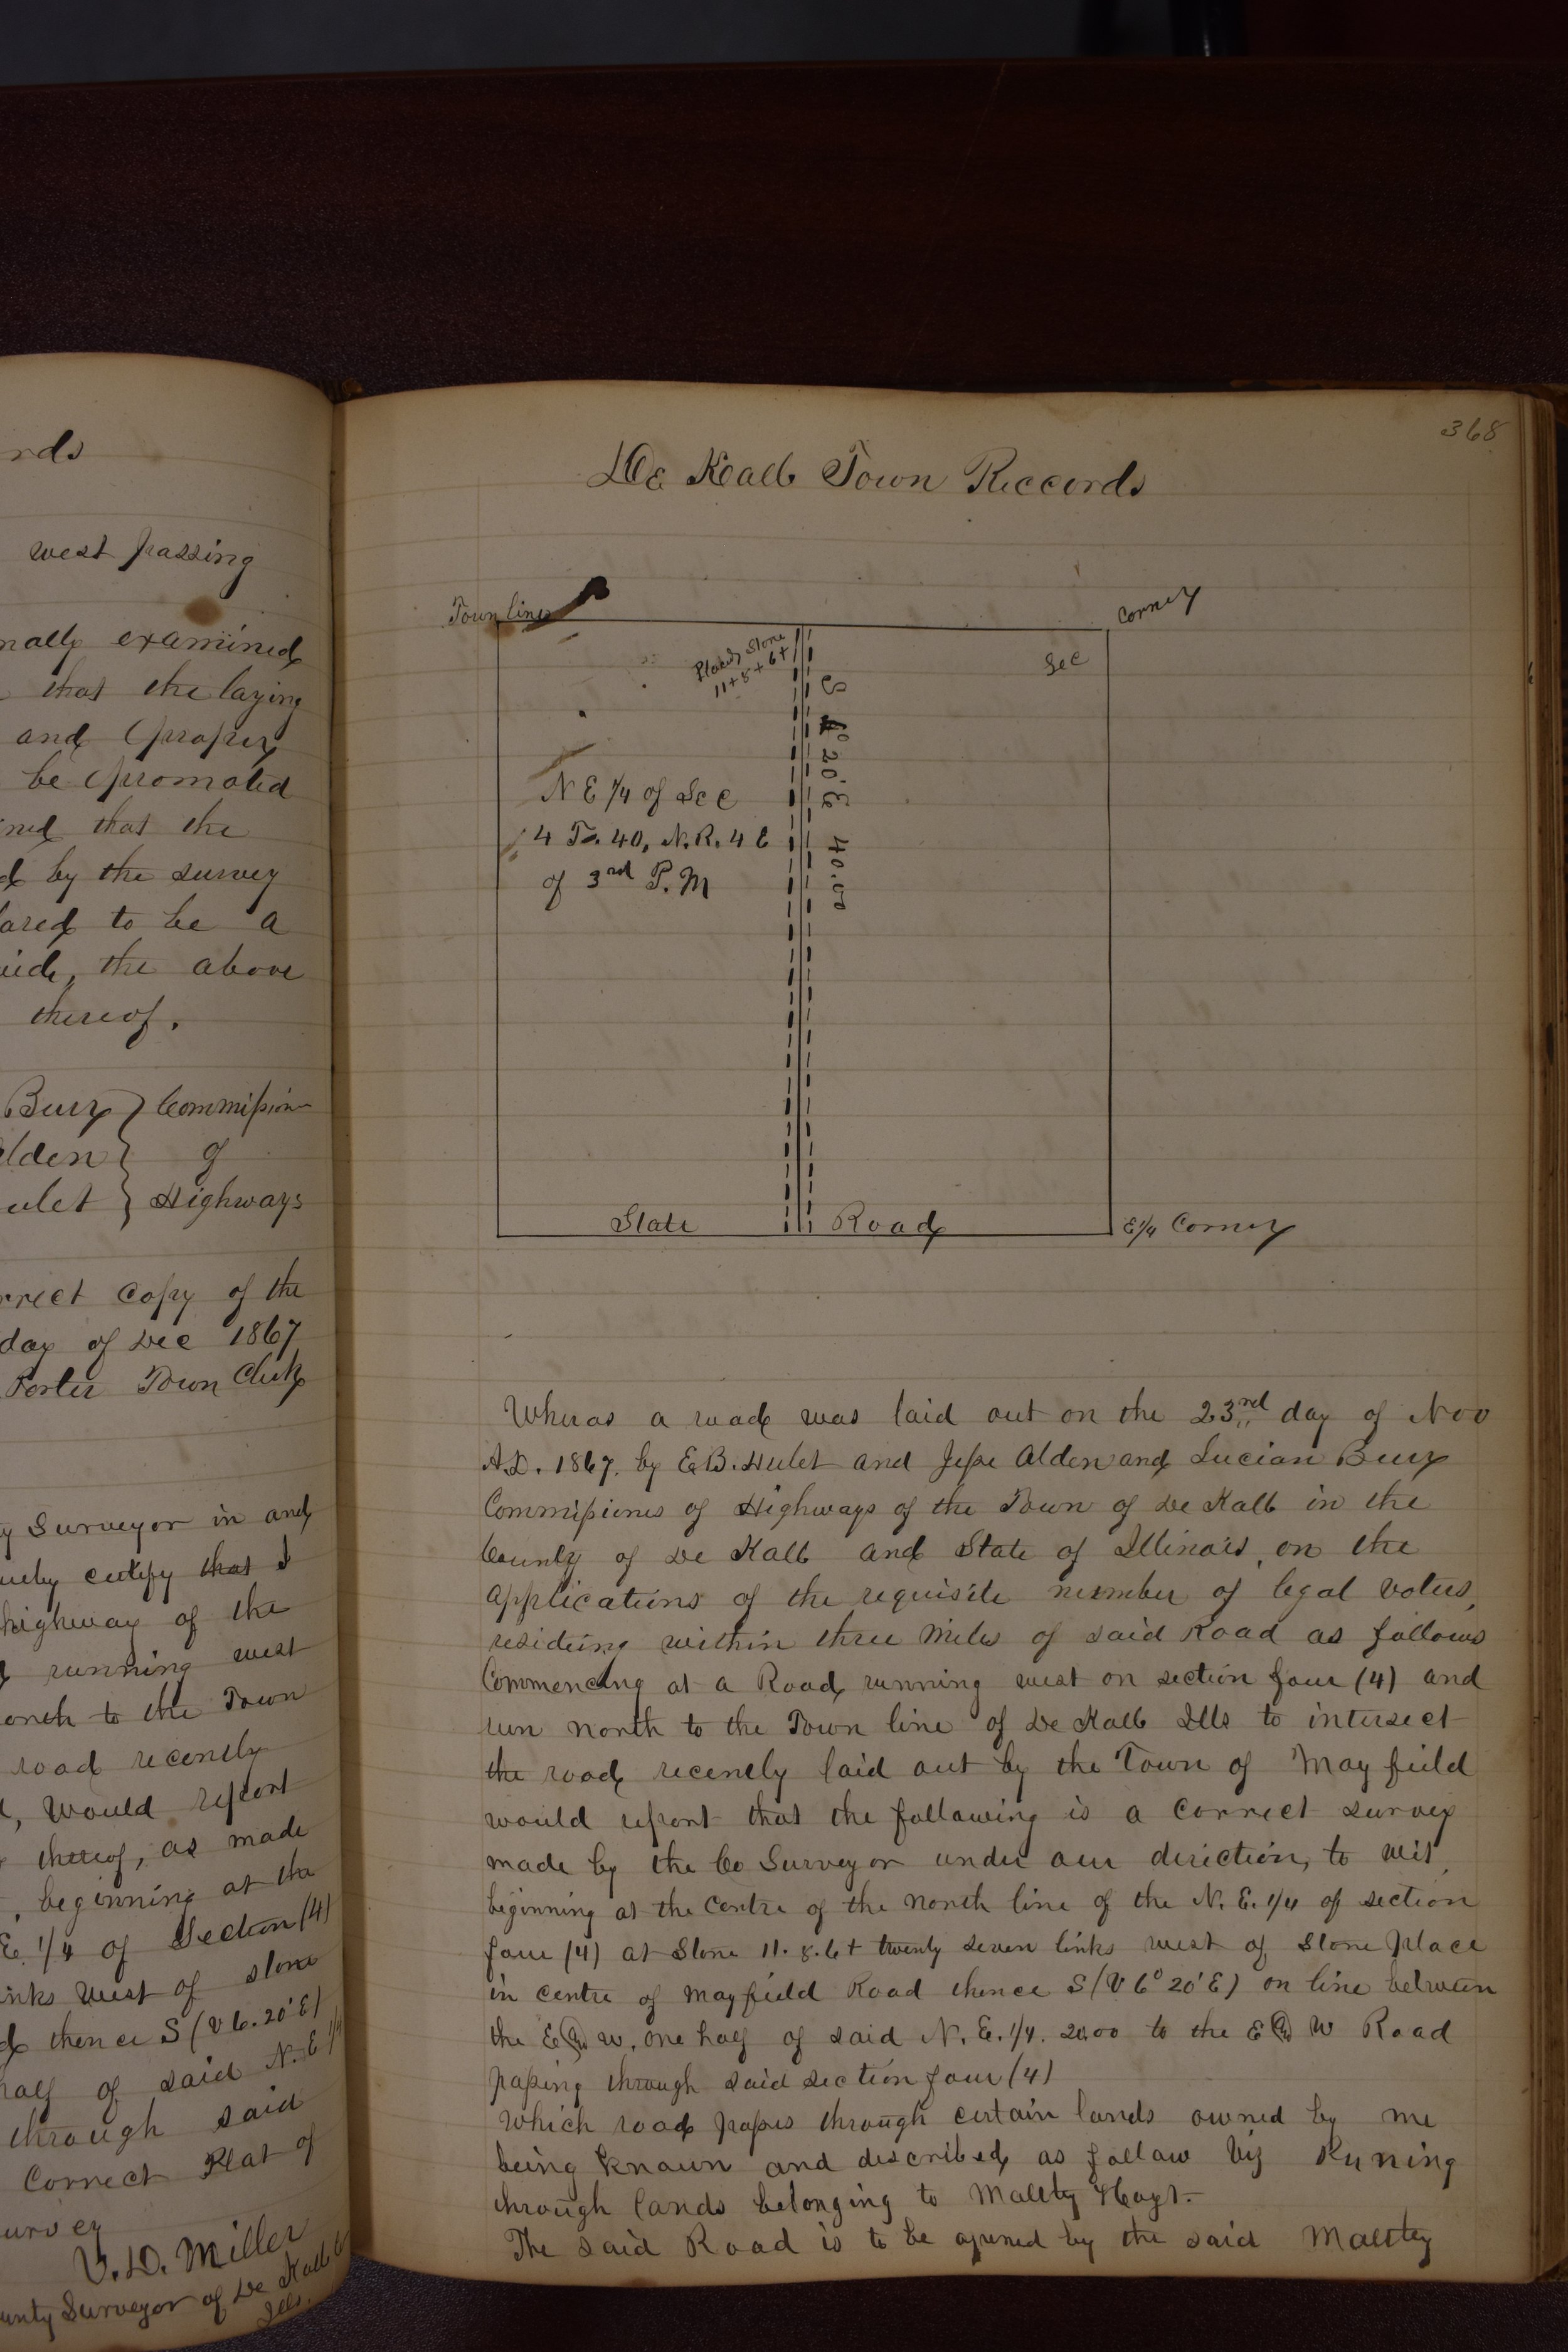 rds
west passing
nally examined
that the laying
and proper
be promoted
ined that the
d by the survey
lared to be a
the above
thereof.
Burz } Commission
Alden } of
ulet } Highways
rrect Copy of the
day of Dec 1867
Porter Town Clerk
y Surveyor in and
certify that I
highway of the
running west
north to the Town
road recently
would report
thereof, as made
, beginning at the
E. 1/4 of Section (4)
inks west of stone
thence S (V 6.20'E)
half of said N. E 1/4
through said
Correct Plat of
urvey
V. D. Miller
unty Surveyor of De Kalb Co
Ills.
368
De Kalb Town Reccords
Town line
Corner
Placed Stone
11+8+6+
Sec
S 4° 20' E 40.00
N E 1/4 of Sec
4 T. 40, N. R. 4 E
of 3rd P. M
State Road
E 1/4 Corner
Wheras a road was laid out on the 23rd day of Nov
A.D. 1867. by E. B. Hulet and Jesse Alden and Lucian Burz
Commissiones of Highways of the Town of De Kalb in the
County of De Kalb and State of Illinois, on the
applications of the requisite number of legal voters,
residing within three Miles of said Road as follows
Commencing at a Road running west on section four (4) and
run north to the Town line of De Kalb Ills to intersect
the road recently laid out by the Town of Mayfield
would report that the following is a Correct survey
made by the Co Surveyor under our direction, to wit,
beginning at the Centre of the north line of the N. E. 1/4 of section
four (4) at Stone 11. 8. 6+ twenty seven links west of Stone place
in centre of Mayfield Road thence S (V 6° 20' E) on line between
the E & W. one half of said N. E. 1/4. 20.00 to the E & W Road
passing through said section four (4)
Which road passes through certain lands owned by me
being known and described as follow viz Runing
through lands belonging to Maltby Hoyt.
The said Road is to be opened by the said Maltby